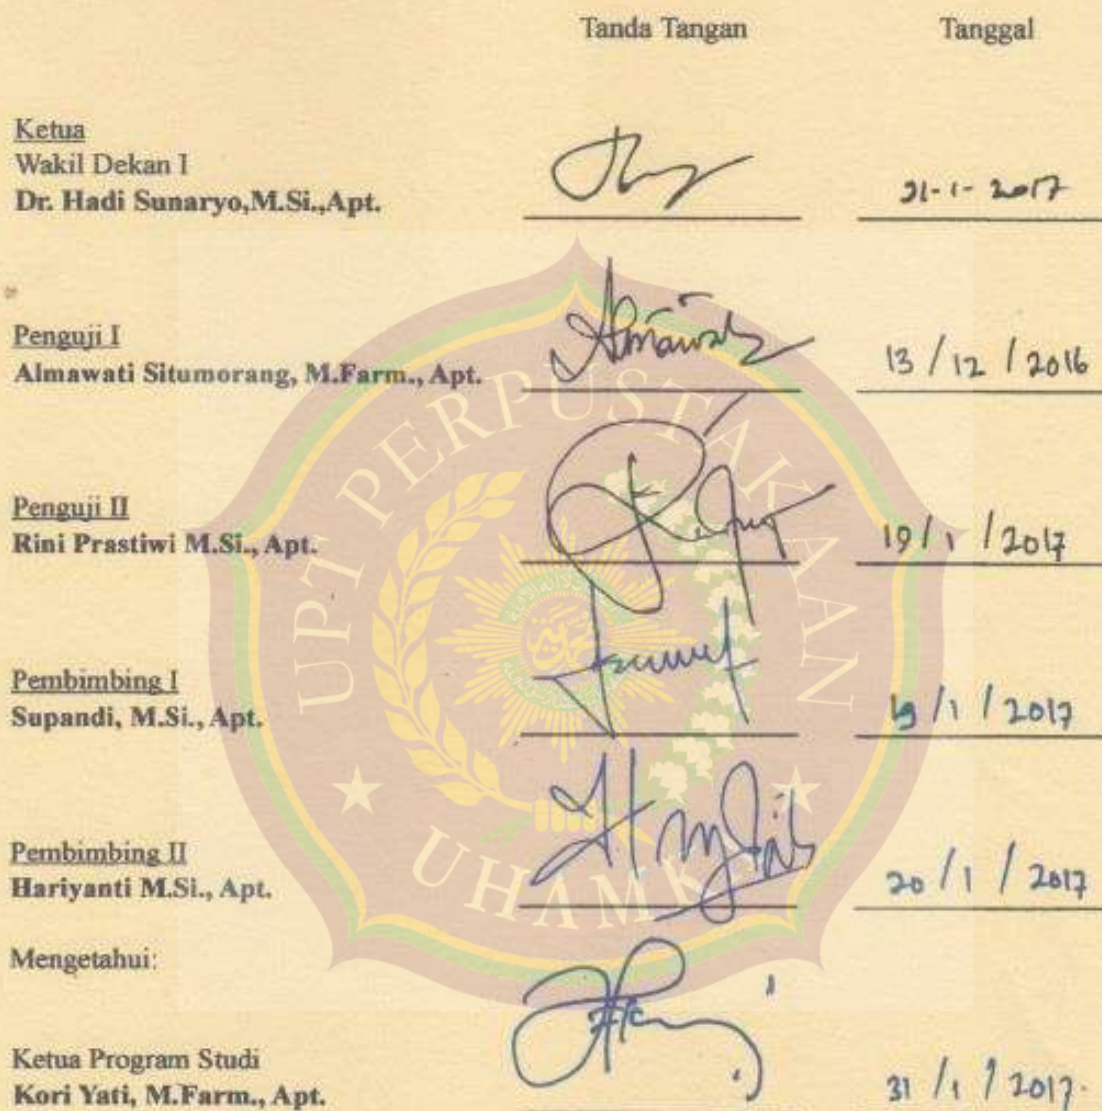 Tanda Tangan Tanggal
Ketua
Wakil Dekan I
Dr. Hadi Sunaryo,M.Si.,Apt. 31-1-2017
Penguji I
Almawati Situmorang, M.Farm., Apt. 13/12/2016
Penguji II
Rini Prastiwi M.Si., Apt. 19/1/2017
Pembimbing I
Supandi, M.Si., Apt. 19/1/2017
Pembimbing II
Hariyanti M.Si., Apt. 20/1/2017
Mengetahui:
Ketua Program Studi
Kori Yati, M.Farm., Apt. 31/1/2017.
UPT PERPUSTAKAAN
UHAMKA